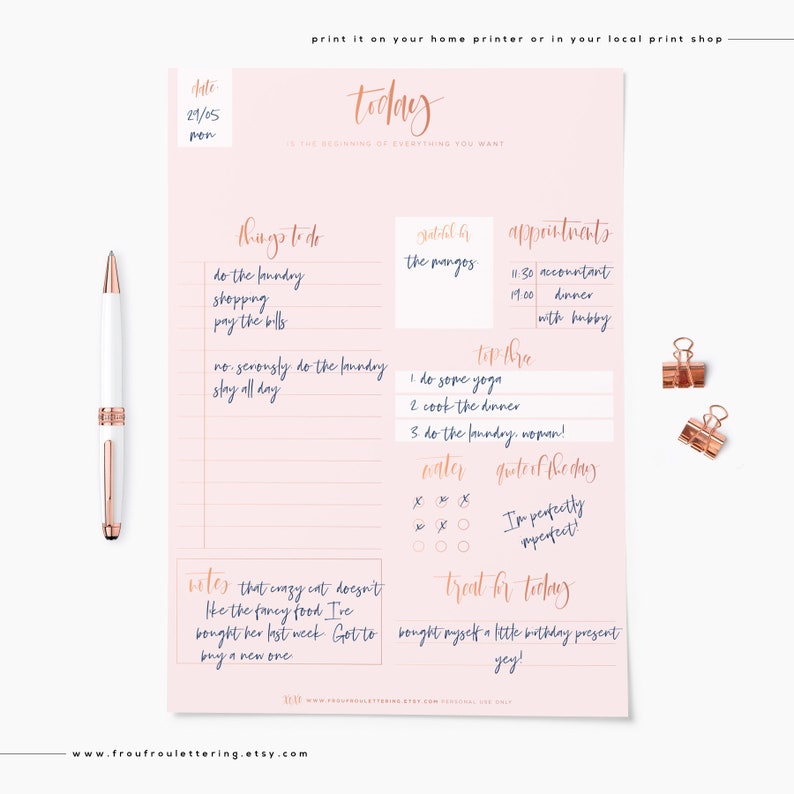 print it on your home printer or in your local print shop
date
29/05
mon
today
IS THE BEGINNING OF EVERYTHING YOU WANT
things to do
do the laundry
shopping
pay the bills
no, seriously. do the laundry
slay all day
grateful for
the mangos.
appointments
11:30 accountant
19:00 dinner
with hubby
top three
1. do some yoga
2. cook the dinner
3. do the laundry, woman!
water
x x x
x x
quote of the day
I'm perfectly
imperfect!
notes that crazy cat doesn't
like the fancy food I've
bought her last week. Got to
buy a new one.
treat for today
bought myself a little birthday present
yey!
xoxo WWW.FROUFROULETTERING.ETSY.COM PERSONAL USE ONLY
www.froufroulettering.etsy.com